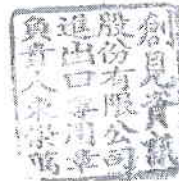 創見資訊
股份有限公司
進出口專用章
負責人束崇萬